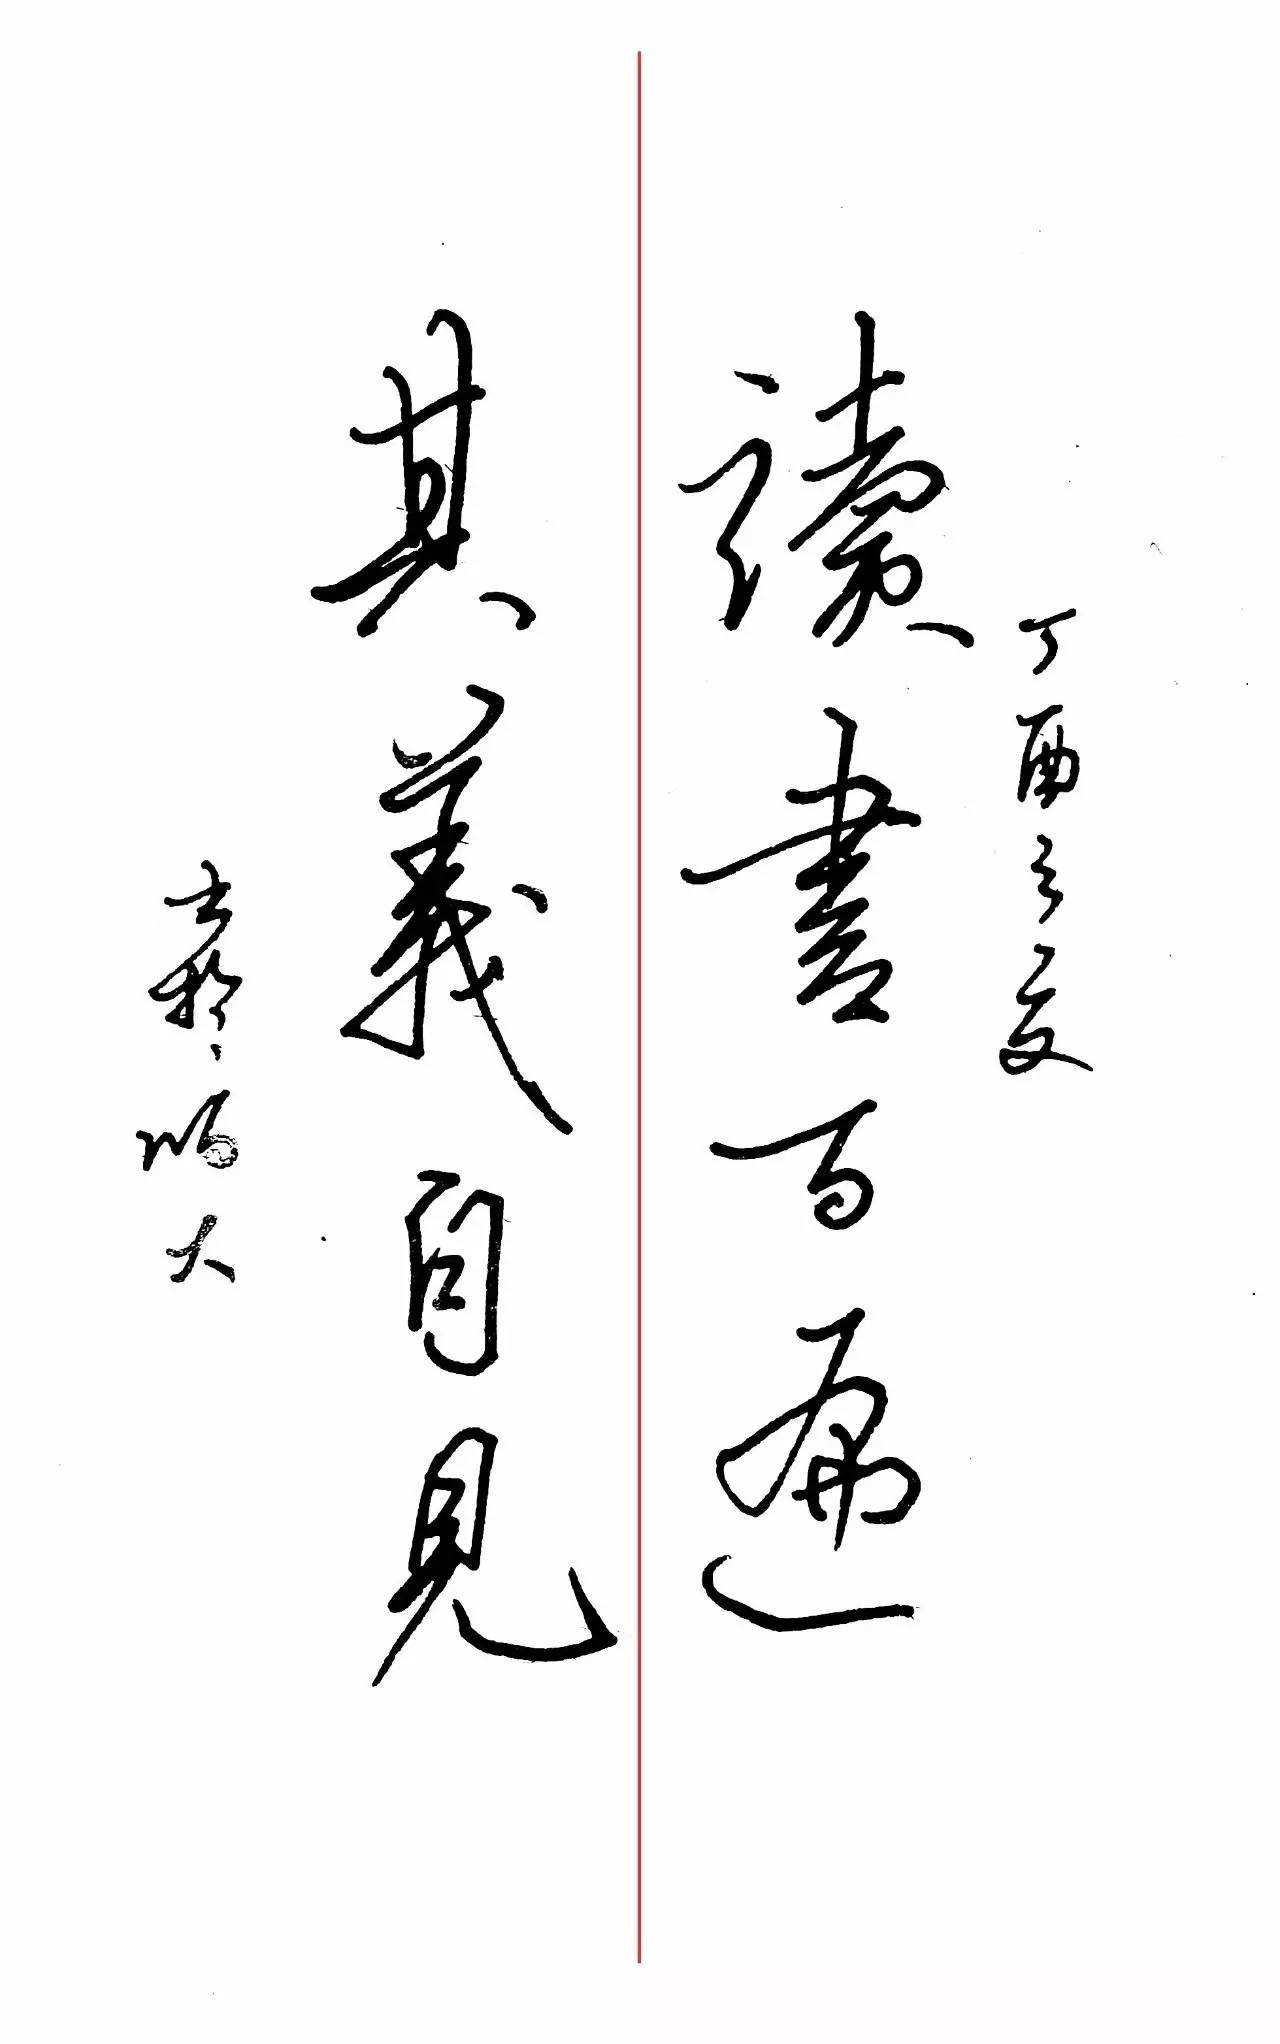 丁酉之夏
讀書百遍
其義自見
大